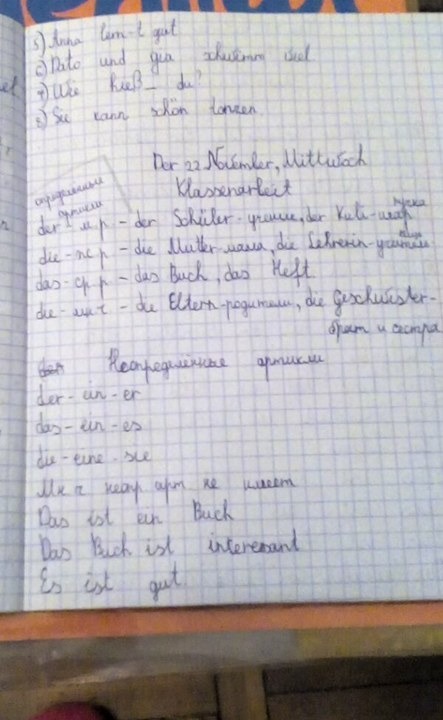 5) Anna lern-t gut
6) Pato und gia schwimm viel
7) Wie heiß_ du?
8) Sie kann schön tanzen
Der 22 November, Mittwoch
Klassenarbeit
определённый
артикль
der м р - der Schüler - ученик, der Kuli -
ручка
die - ж р - die Mutter - мама, die Lehrerin -
das - ср р - das Buch, das Heft
die - мн ч - die Eltern - родители, die Geschwister -
брат и сестра
Неопределённые артикли
der - ein - er
das - ein - es
die - eine - sie
Мн ч неопр арт не имеет
Das ist ein Buch
Das Buch ist interesant
Es ist gut